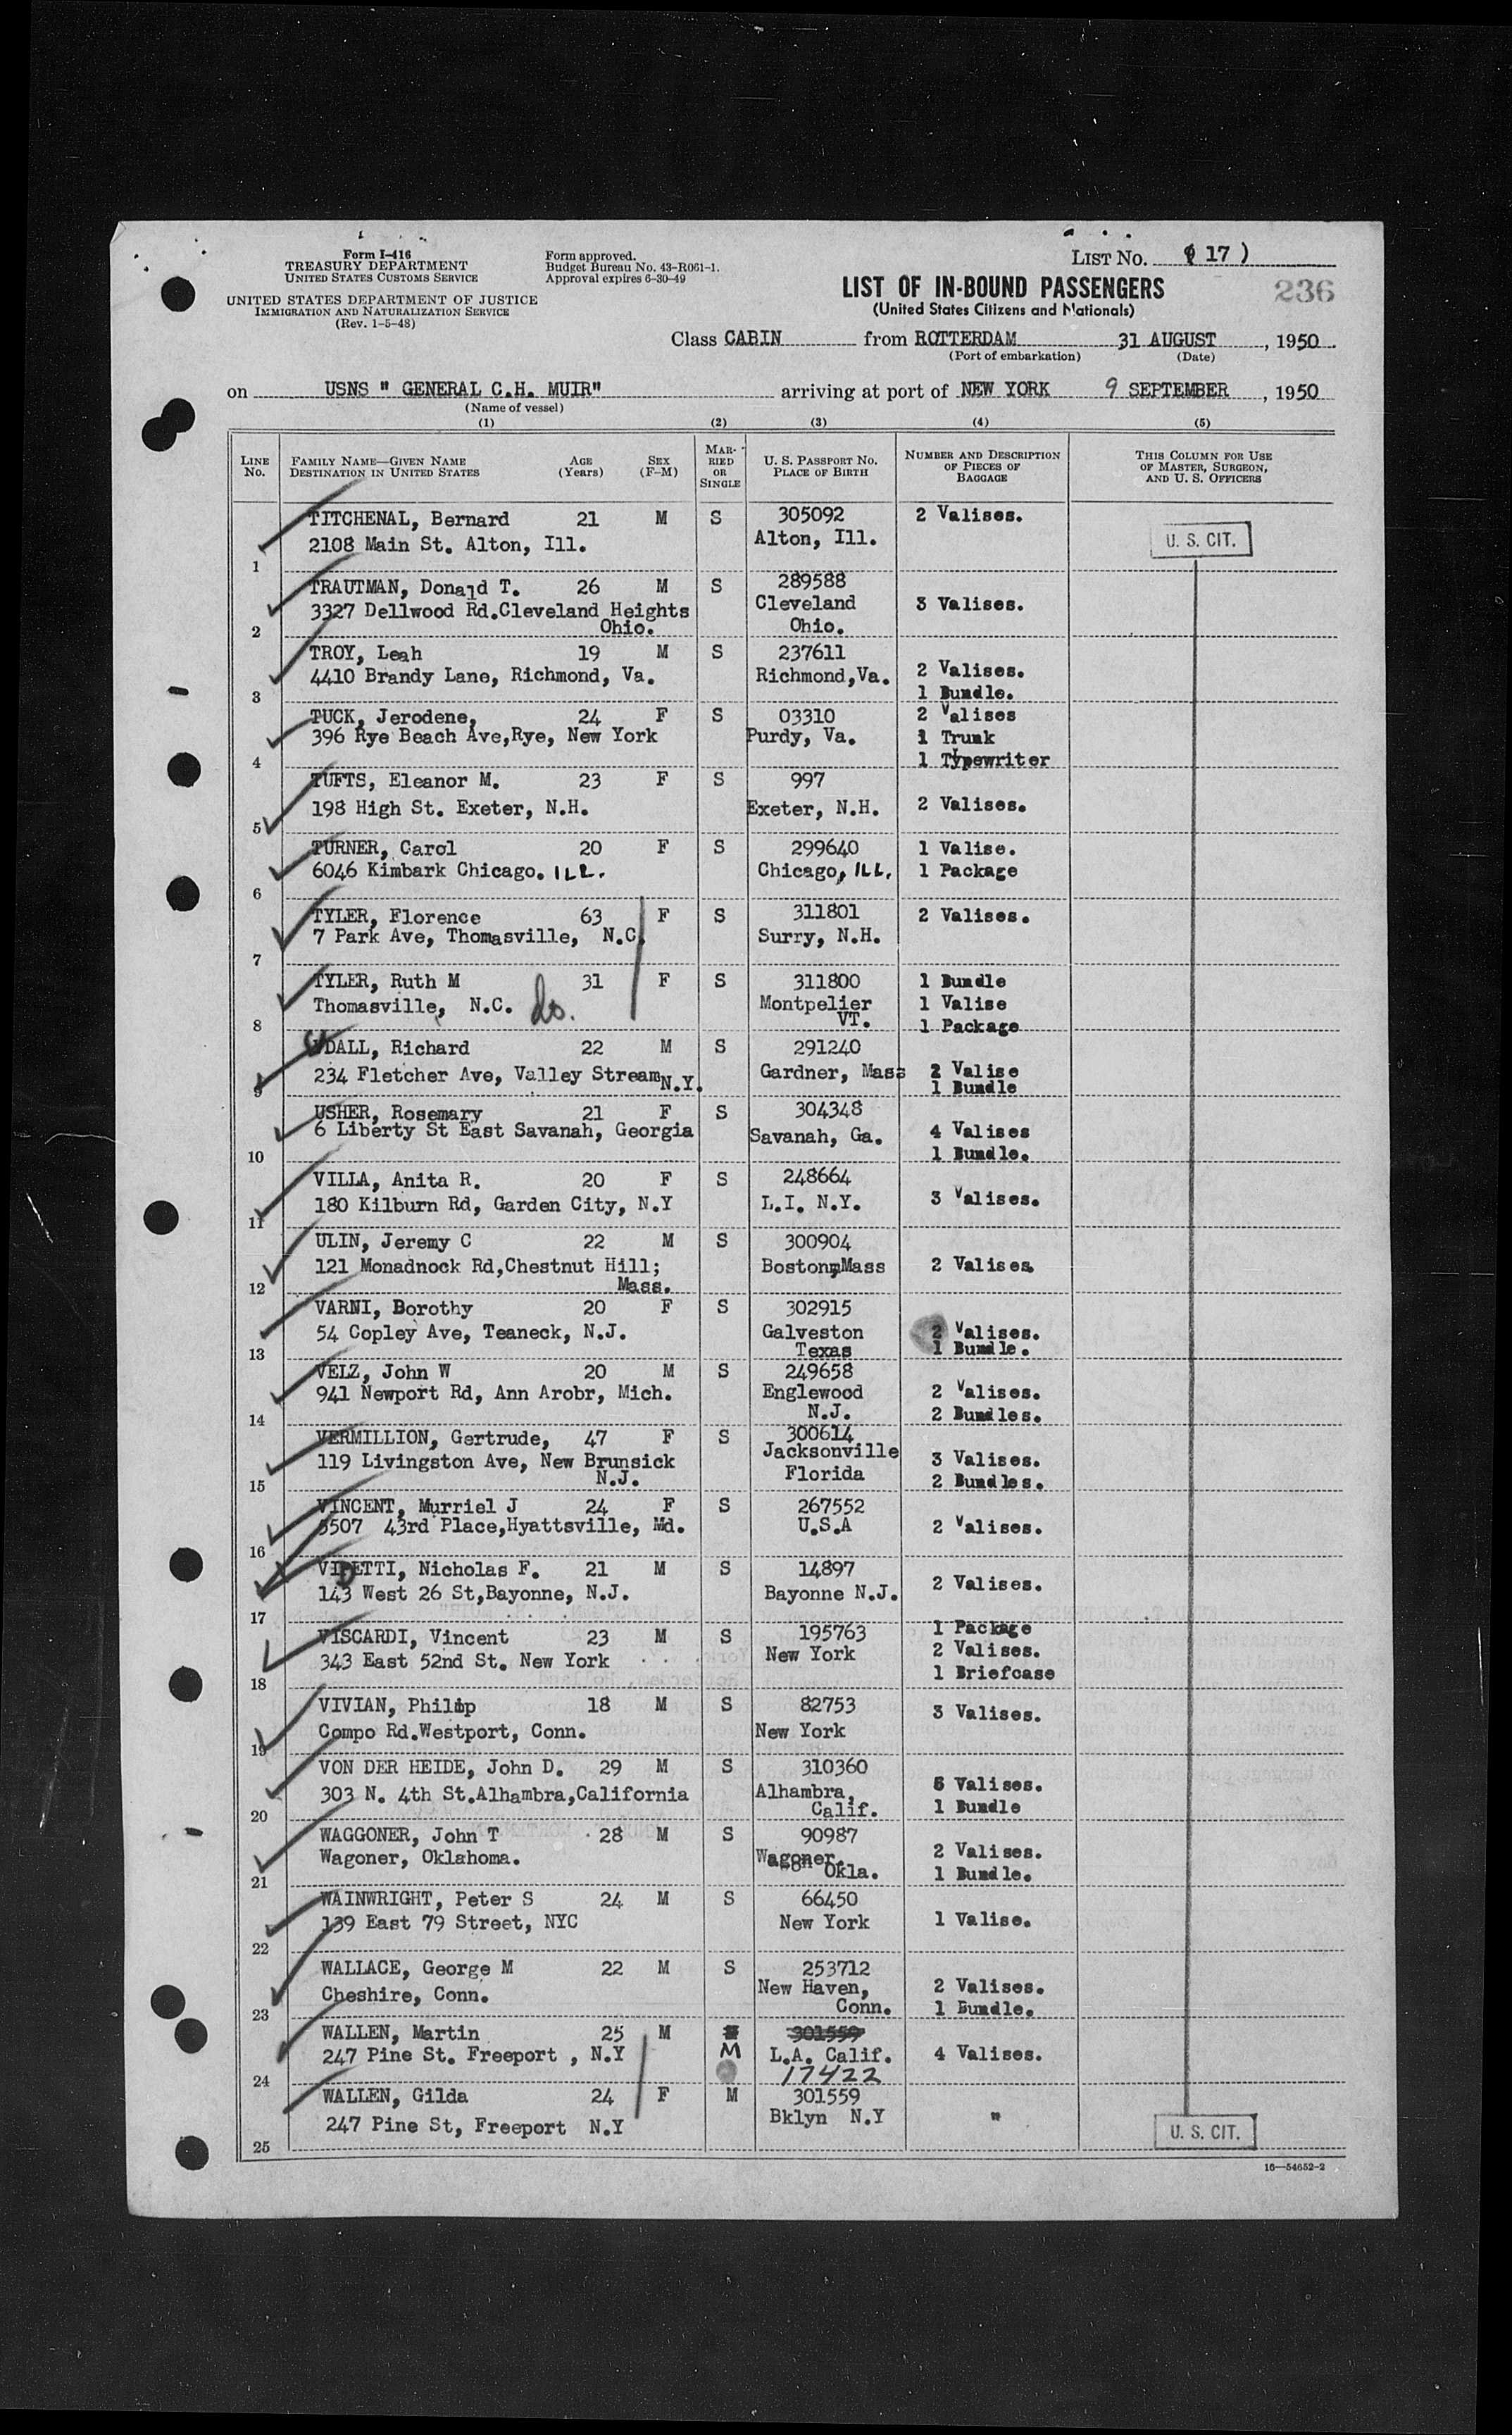 Form I-416
TREASURY DEPARTMENT
UNITED STATES CUSTOMS SERVICE
UNITED STATES DEPARTMENT OF JUSTICE
IMMIGRATION AND NATURALIZATION SERVICE
(Rev. 1-5-48)
Form approved.
Budget Bureau No. 43-R061-1.
Approval expires 6-30-49
LIST No. ( 17 )
LIST OF IN-BOUND PASSENGERS
236
(United States Citizens and Nationals)
Class CABIN from ROTTERDAM 31 AUGUST, 1950
(Port of embarkation) (Date)
on USNS " GENERAL C.H. MUIR" arriving at port of NEW YORK 9 SEPTEMBER, 1950
(Name of vessel)
(1) (2) (3) (4) (5)
LINE No.
FAMILY NAME—GIVEN NAME
DESTINATION IN UNITED STATES
AGE (Years)
SEX (F-M)
MARRIED OR SINGLE
U. S. PASSPORT NO.
PLACE OF BIRTH
NUMBER AND DESCRIPTION OF PIECES OF BAGGAGE
THIS COLUMN FOR USE OF MASTER, SURGEON, AND U. S. OFFICERS
TITCHENAL, Bernard 21 M S 305092 2 Valises.
2108 Main St. Alton, Ill. Alton, Ill. U. S. CIT.
1
TRAUTMAN, Donald T. 26 M S 289588
3327 Dellwood Rd.Cleveland Heights Cleveland 3 Valises.
2 Ohio. Ohio.
TROY, Leah 19 M S 237611
4410 Brandy Lane, Richmond, Va. Richmond,Va. 2 Valises.
3 1 Bundle.
TUCK, Jerodene, 24 F S 03310 2 Valises
396 Rye Beach Ave,Rye, New York Purdy, Va. 1 Trunk
4 1 Typewriter
TUFTS, Eleanor M. 23 F S 997
198 High St. Exeter, N.H. Exeter, N.H. 2 Valises.
5
TURNER, Carol 20 F S 299640 1 Valise.
6046 Kimbark Chicago. ILL. Chicago, ILL. 1 Package
6
TYLER, Florence 63 F S 311801 2 Valises.
7 Park Ave, Thomasville, N.C. Surry, N.H.
7
TYLER, Ruth M 31 F S 311800 1 Bundle
Thomasville, N.C. do. Montpelier 1 Valise
8 VT. 1 Package
UDALL, Richard 22 M S 291240
234 Fletcher Ave, Valley Stream N.Y. Gardner, Mass 2 Valise
9 1 Bundle
USHER, Rosemary 21 F S 304348
6 Liberty St East Savanah, Georgia Savanah, Ga. 4 Valises
10 1 Bundle.
VILLA, Anita R. 20 F S 248664
180 Kilburn Rd, Garden City, N.Y L.I. N.Y. 3 Valises.
11
ULIN, Jeremy C 22 M S 300904
121 Monadnock Rd,Chestnut Hill; Boston,Mass 2 Valises.
12 Mass.
VARNI, Dorothy 20 F S 302915
54 Copley Ave, Teaneck, N.J. Galveston 2 Valises.
13 Texas 1 Bundle.
VELZ, John W 20 M S 249658
941 Newport Rd, Ann Arobr, Mich. Englewood 2 Valises.
14 N.J. 2 Bundles.
VERMILLION, Gertrude, 47 F S 300614
119 Livingston Ave, New Brunsick Jacksonville 3 Valises.
15 N.J. Florida 2 Bundles.
VINCENT, Murriel J 24 F S 267552
5507 43rd Place,Hyattsville, Md. U.S.A 2 Valises.
16
VIDETTI, Nicholas F. 21 M S 14897
143 West 26 St,Bayonne, N.J. Bayonne N.J. 2 Valises.
17
VISCARDI, Vincent 23 M S 195763 1 Package
343 East 52nd St. New York New York 2 Valises.
18 1 Briefcase
VIVIAN, Philip 18 M S 82753 3 Valises.
Compo Rd.Westport, Conn. New York
19
VON DER HEIDE, John D. 29 M S 310360
303 N. 4th St.Alhambra,California Alhambra, Valises.
20 Calif. 1 Bundle
WAGGONER, John T 28 M S 90987
Wagoner, Oklahoma. Wagoner, 2 Valises.
21 Okla. 1 Bundle.
WAINWRIGHT, Peter S 24 M S 66450
139 East 79 Street, NYC New York 1 Valise.
22
WALLACE, George M 22 M S 253712
Cheshire, Conn. New Haven, 2 Valises.
23 Conn. 1 Bundle.
WALLEN, Martin 25 M 301559
247 Pine St. Freeport , N.Y M L.A. Calif. 4 Valises.
24 17422
WALLEN, Gilda 24 F M 301559
247 Pine St, Freeport N.Y Bklyn N.Y "
25 U. S. CIT.
16—54652-2